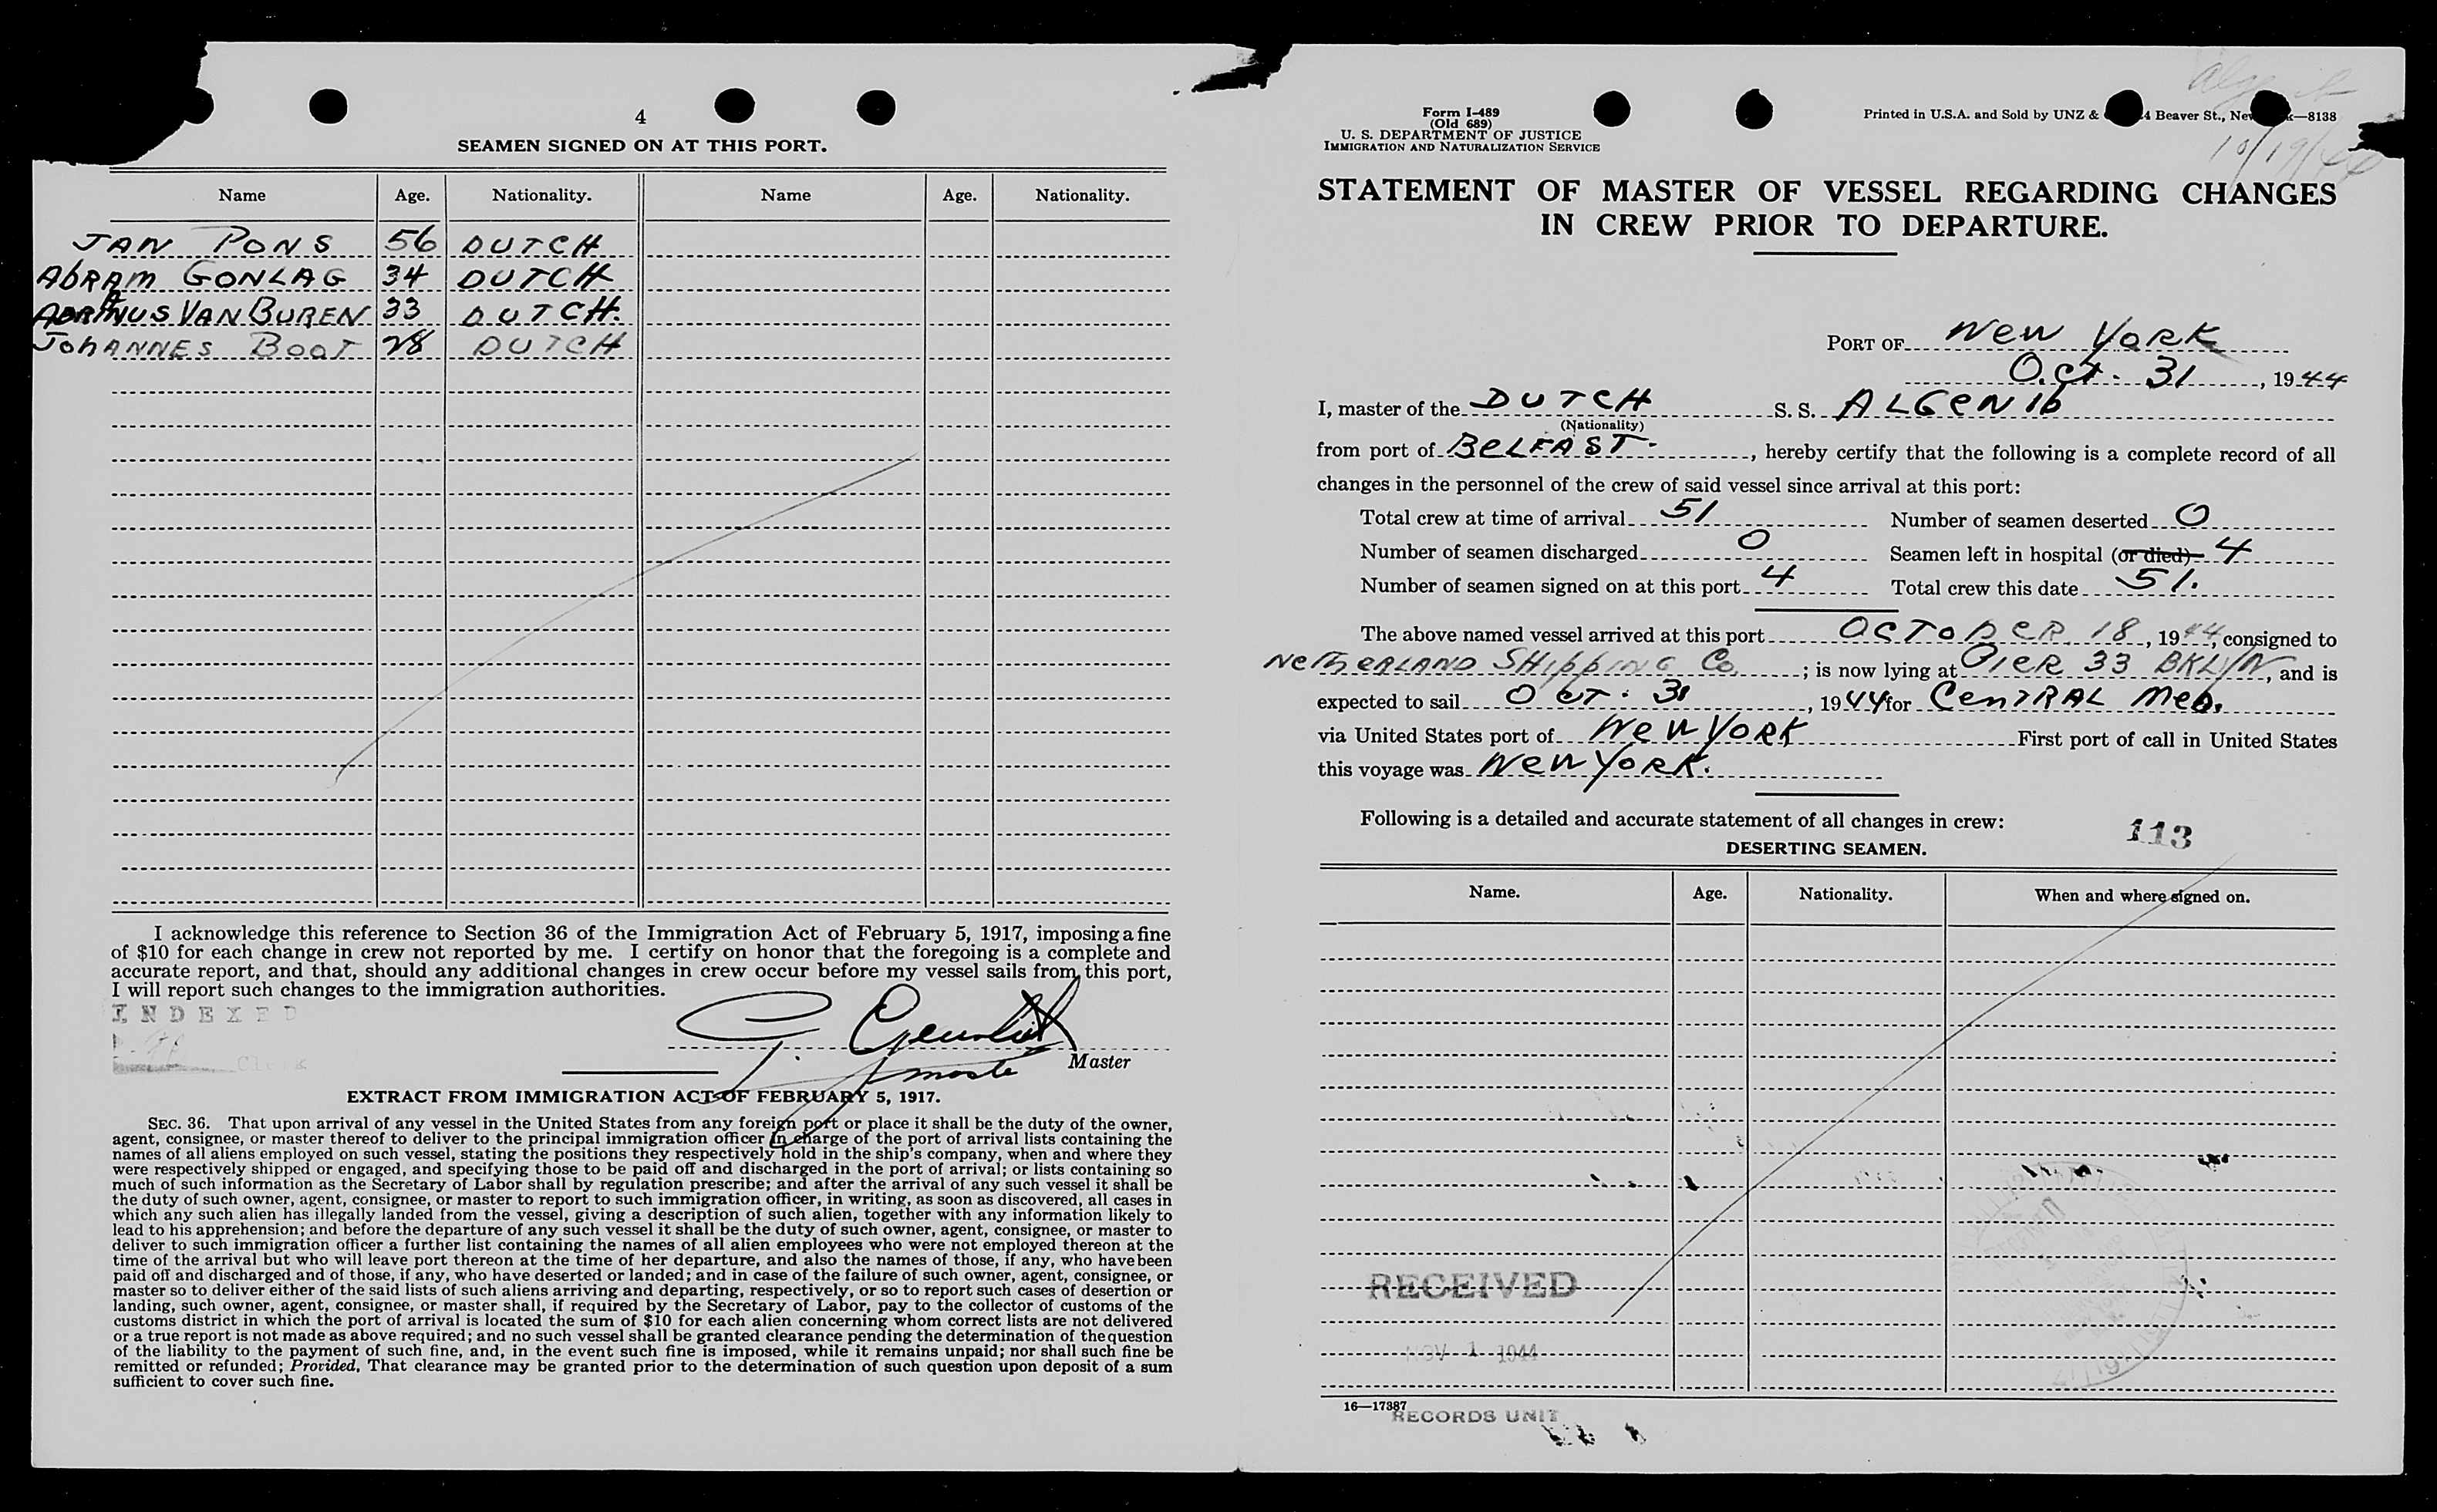 4
SEAMEN SIGNED ON AT THIS PORT.
Name Age. Nationality. Name Age. Nationality.
JAN PONS 56 DUTCH
AbRAM GONLAG 34 DUTCH
ADRIANUS VAN BUREN 33 DUTCH.
JohANNES BOOT 28 DUTCH
I acknowledge this reference to Section 36 of the Immigration Act of February 5, 1917, imposing a fine
of $10 for each change in crew not reported by me. I certify on honor that the foregoing is a complete and
accurate report, and that, should any additional changes in crew occur before my vessel sails from this port,
I will report such changes to the immigration authorities.
INDEXED
Clerk
Master
EXTRACT FROM IMMIGRATION ACT OF FEBRUARY 5, 1917.
SEC. 36. That upon arrival of any vessel in the United States from any foreign port or place it shall be the duty of the owner,
agent, consignee, or master thereof to deliver to the principal immigration officer in charge of the port of arrival lists containing the
names of all aliens employed on such vessel, stating the positions they respectively hold in the ship's company, when and where they
were respectively shipped or engaged, and specifying those to be paid off and discharged in the port of arrival; or lists containing so
much of such information as the Secretary of Labor shall by regulation prescribe; and after the arrival of any such vessel it shall be
the duty of such owner, agent, consignee, or master to report to such immigration officer, in writing, as soon as discovered, all cases in
which any such alien has illegally landed from the vessel, giving a description of such alien, together with any information likely to
lead to his apprehension; and before the departure of any such vessel it shall be the duty of such owner, agent, consignee, or master to
deliver to such immigration officer a further list containing the names of all alien employees who were not employed thereon at the
time of the arrival but who will leave port thereon at the time of her departure, and also the names of those, if any, who have been
paid off and discharged and of those, if any, who have deserted or landed; and in case of the failure of such owner, agent, consignee, or
master so to deliver either of the said lists of such aliens arriving and departing, respectively, or so to report such cases of desertion or
landing, such owner, agent, consignee, or master shall, if required by the Secretary of Labor, pay to the collector of customs of the
customs district in which the port of arrival is located the sum of $10 for each alien concerning whom correct lists are not delivered
or a true report is not made as above required; and no such vessel shall be granted clearance pending the determination of the question
of the liability to the payment of such fine, and, in the event such fine is imposed, while it remains unpaid; nor shall such fine be
remitted or refunded; Provided, That clearance may be granted prior to the determination of such question upon deposit of a sum
sufficient to cover such fine.
Form I-489
(Old 689)
U. S. DEPARTMENT OF JUSTICE
IMMIGRATION AND NATURALIZATION SERVICE
Printed in U.S.A. and Sold by UNZ & 4 Beaver St., New —8138
10/19/44
STATEMENT OF MASTER OF VESSEL REGARDING CHANGES
IN CREW PRIOR TO DEPARTURE.
PORT OF New York
Oct. 31, 1944
I, master of the DUTCH S. S. ALGENIb
(Nationality)
from port of BELFAST., hereby certify that the following is a complete record of all
changes in the personnel of the crew of said vessel since arrival at this port:
Total crew at time of arrival 51 Number of seamen deserted 0
Number of seamen discharged 0 Seamen left in hospital (or died) 4
Number of seamen signed on at this port 4 Total crew this date 51.
The above named vessel arrived at this port OCTOBER 18, 1944, consigned to
NETHERLAND SHIPPING Co; is now lying at PIER 33 BKLYN, and is
expected to sail OCT. 31, 1944 for CENTRAL MED.
via United States port of New YORK First port of call in United States
this voyage was New YORK.
Following is a detailed and accurate statement of all changes in crew:
113
DESERTING SEAMEN.
Name. Age. Nationality. When and where signed on.
RECEIVED
NOV 1 1944
16—17387
RECORDS UNIT